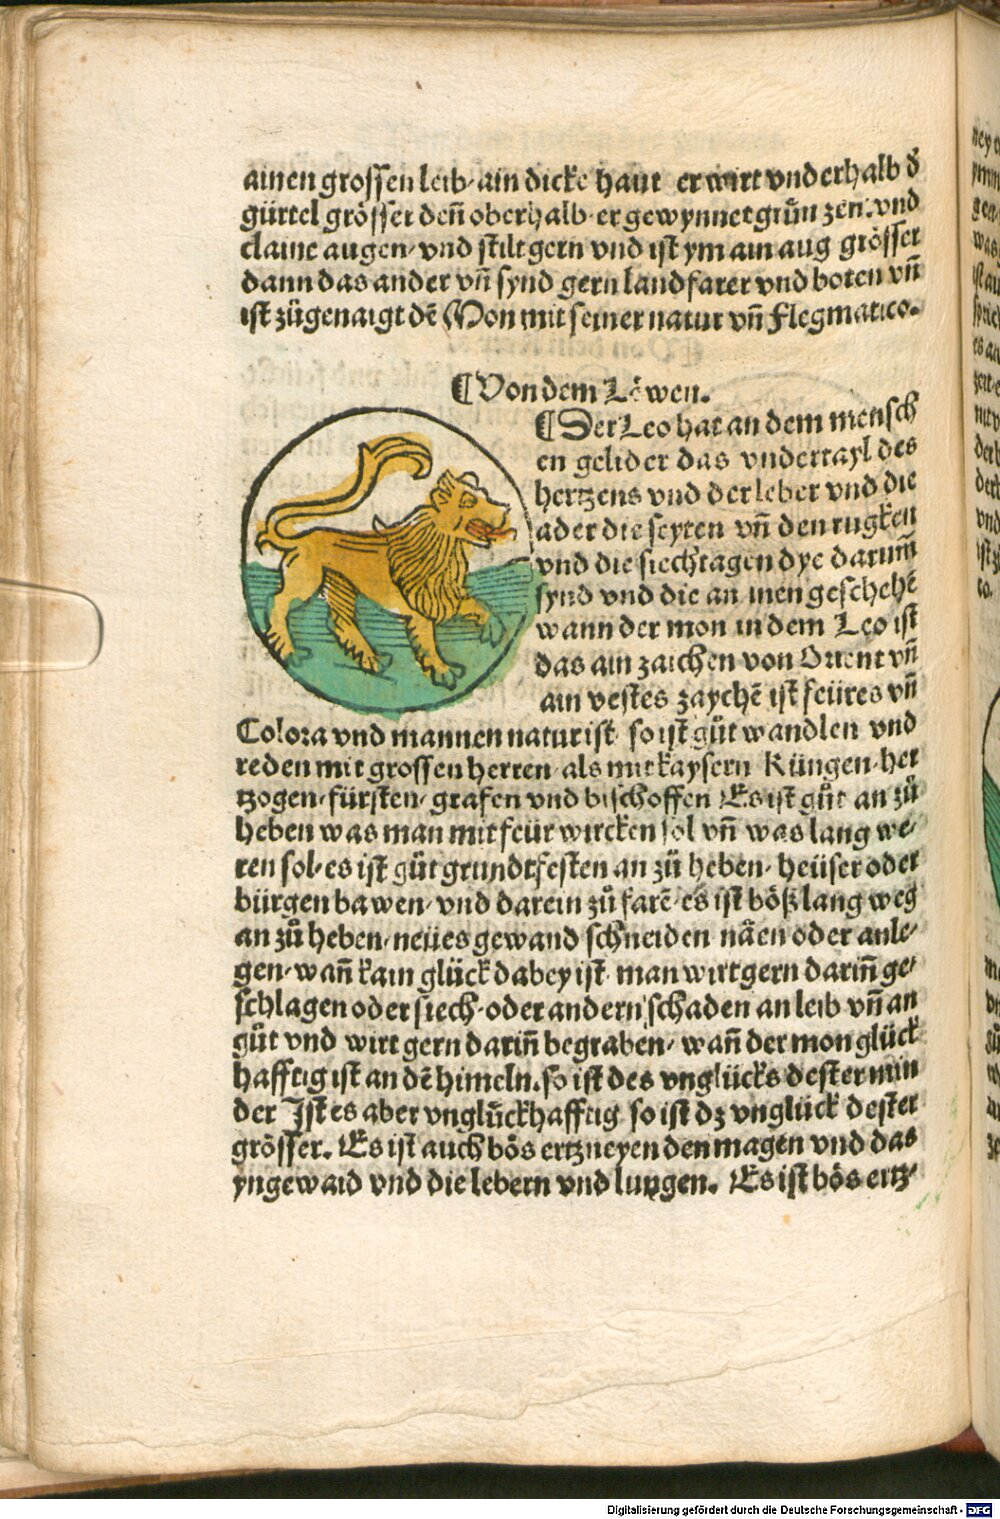 ainen grossen leib· ain dicke haut er wirt vnderhalb d̕
gürtel grösser deñ oberhalb· er gewynnet grůn zen· vnd
claine augen· vnd stilt gern vnd ist ym ain aug grösser
dann das ander vñ synd gern landfarer vnd boten vñ
ist zůgenaigt dē Mon mit seiner natur vñ flegmatico.
⸿ Von dem Löwen.
⸿ Der Leo hat an dem mensch
en gelider das vndertayl des
hertzens vnd der leber vnd die
ader die seyten vñ den rugken
vnd die siechtagen dye darum̄
synd vnd die an inen geschehē
wann der mon in dem Leo ist
das ain zaichen von Orient vñ
ain vestes zaychē ist feüres vñ
Colora vnd mannen natur ist· so ist gůt wandlen vnd
reden mit grossen herren· als mit kaysern Küngen· her
tzogen· fürsten· grafen vnd bischoffen Es ist gůt an zů
heben was man mit feür wircken sol vñ was lang we⸗
ren sol· es ist gůt grundtfesten an zů heben· heüser oder
bürgen bawen· vnd darein zů farē· es ist böß lang weg
an zů heben· neües gewand schneiden näen oder anle⸗
gen· wañ kain glück dabey ist· man wirt gern dariñ ge⸗
schlagen oder siech· oder andern schaden an leib vñ an
gůt vnd wirt gern dariñ begraben· wañ der mon glück
hafftig ist an dē himeln. so ist des vnglücks dester min
der Ist es aber vnglückhafftig so ist dz vnglück dester
grösser. Es ist auch bös ertzneyen den magen vnd das
yngewaid vnd die lebern vnd lungen. Es ist bös ertz⸗
Digitalisierung gefördert durch die Deutsche Forschungsgemeinschaft - DFG